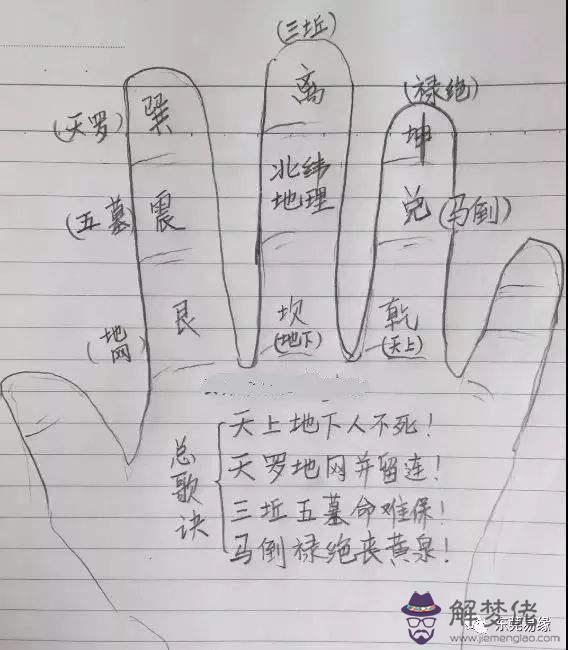 (三坵)
离
(禄绝)
坤
(天罗)
巽
北纬
地理
(五墓)
震
兑
(马倒)
(地网)
艮
坎
(地下)
乾
(天上)
总歌诀
天上地下人不死!
天罗地网并留连!
三坵五墓命难保!
马倒禄绝丧黄泉!
解梦佬
东莞易缘
www.jiemenglao.com/